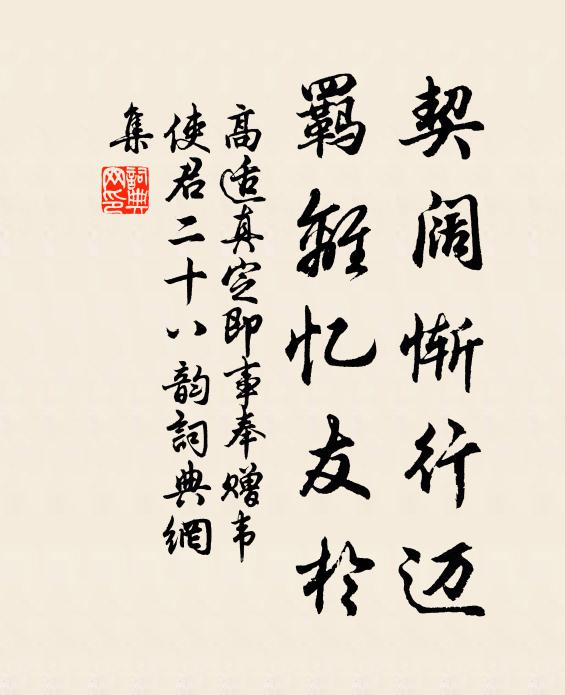 契阔惭行迈
羁离忆友於
高适真定即事奉赠韦
使君二十八韵词典網
集
詞典
网印